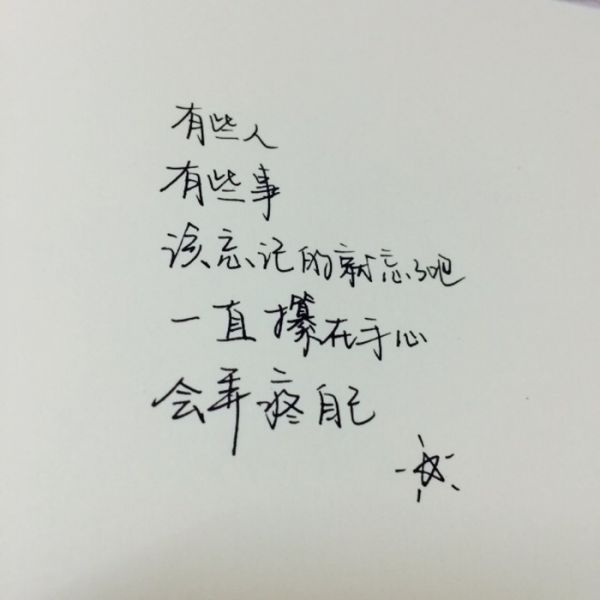 有些人
有些事
该忘记的就忘了吧
一直攥在手心
会弄疼自己